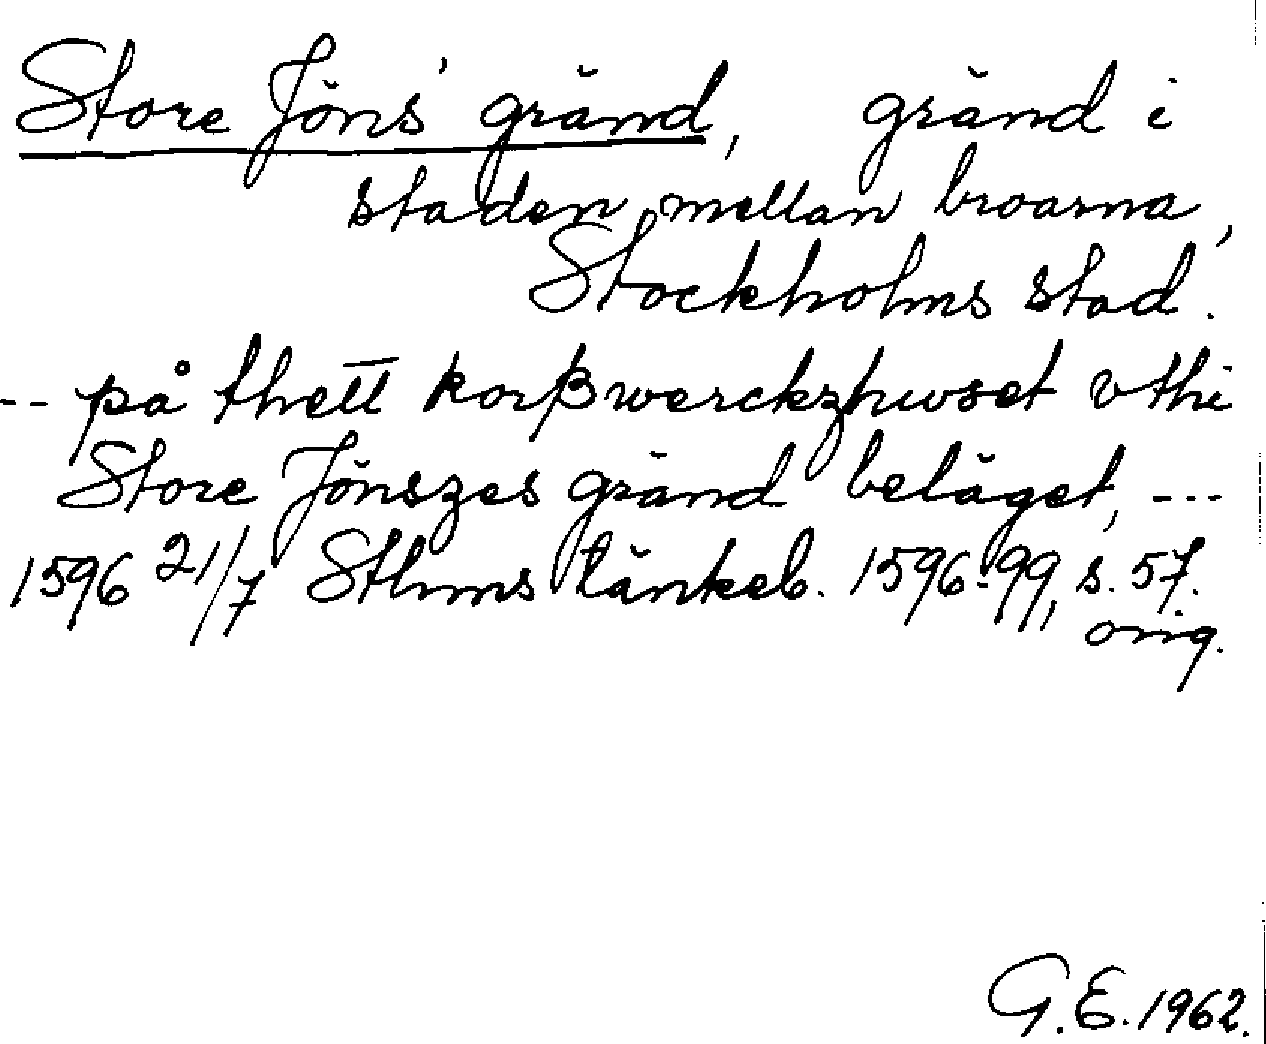 Store Jöns' gränd, gränd i
staden mellan broarna,
Stockholms stad.
-- på thett korßwerckzhuset vthi
Store Jönszes gränd beläget, ---
1596 21/7 Sthms tänkeb. 1596-99, s. 57.
orig.
G.E. 1962.